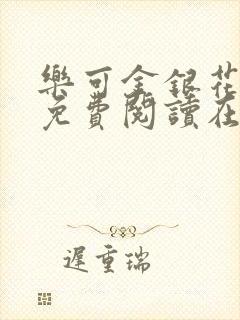 樂可金銀花
免費閱讀在
遲重瑞